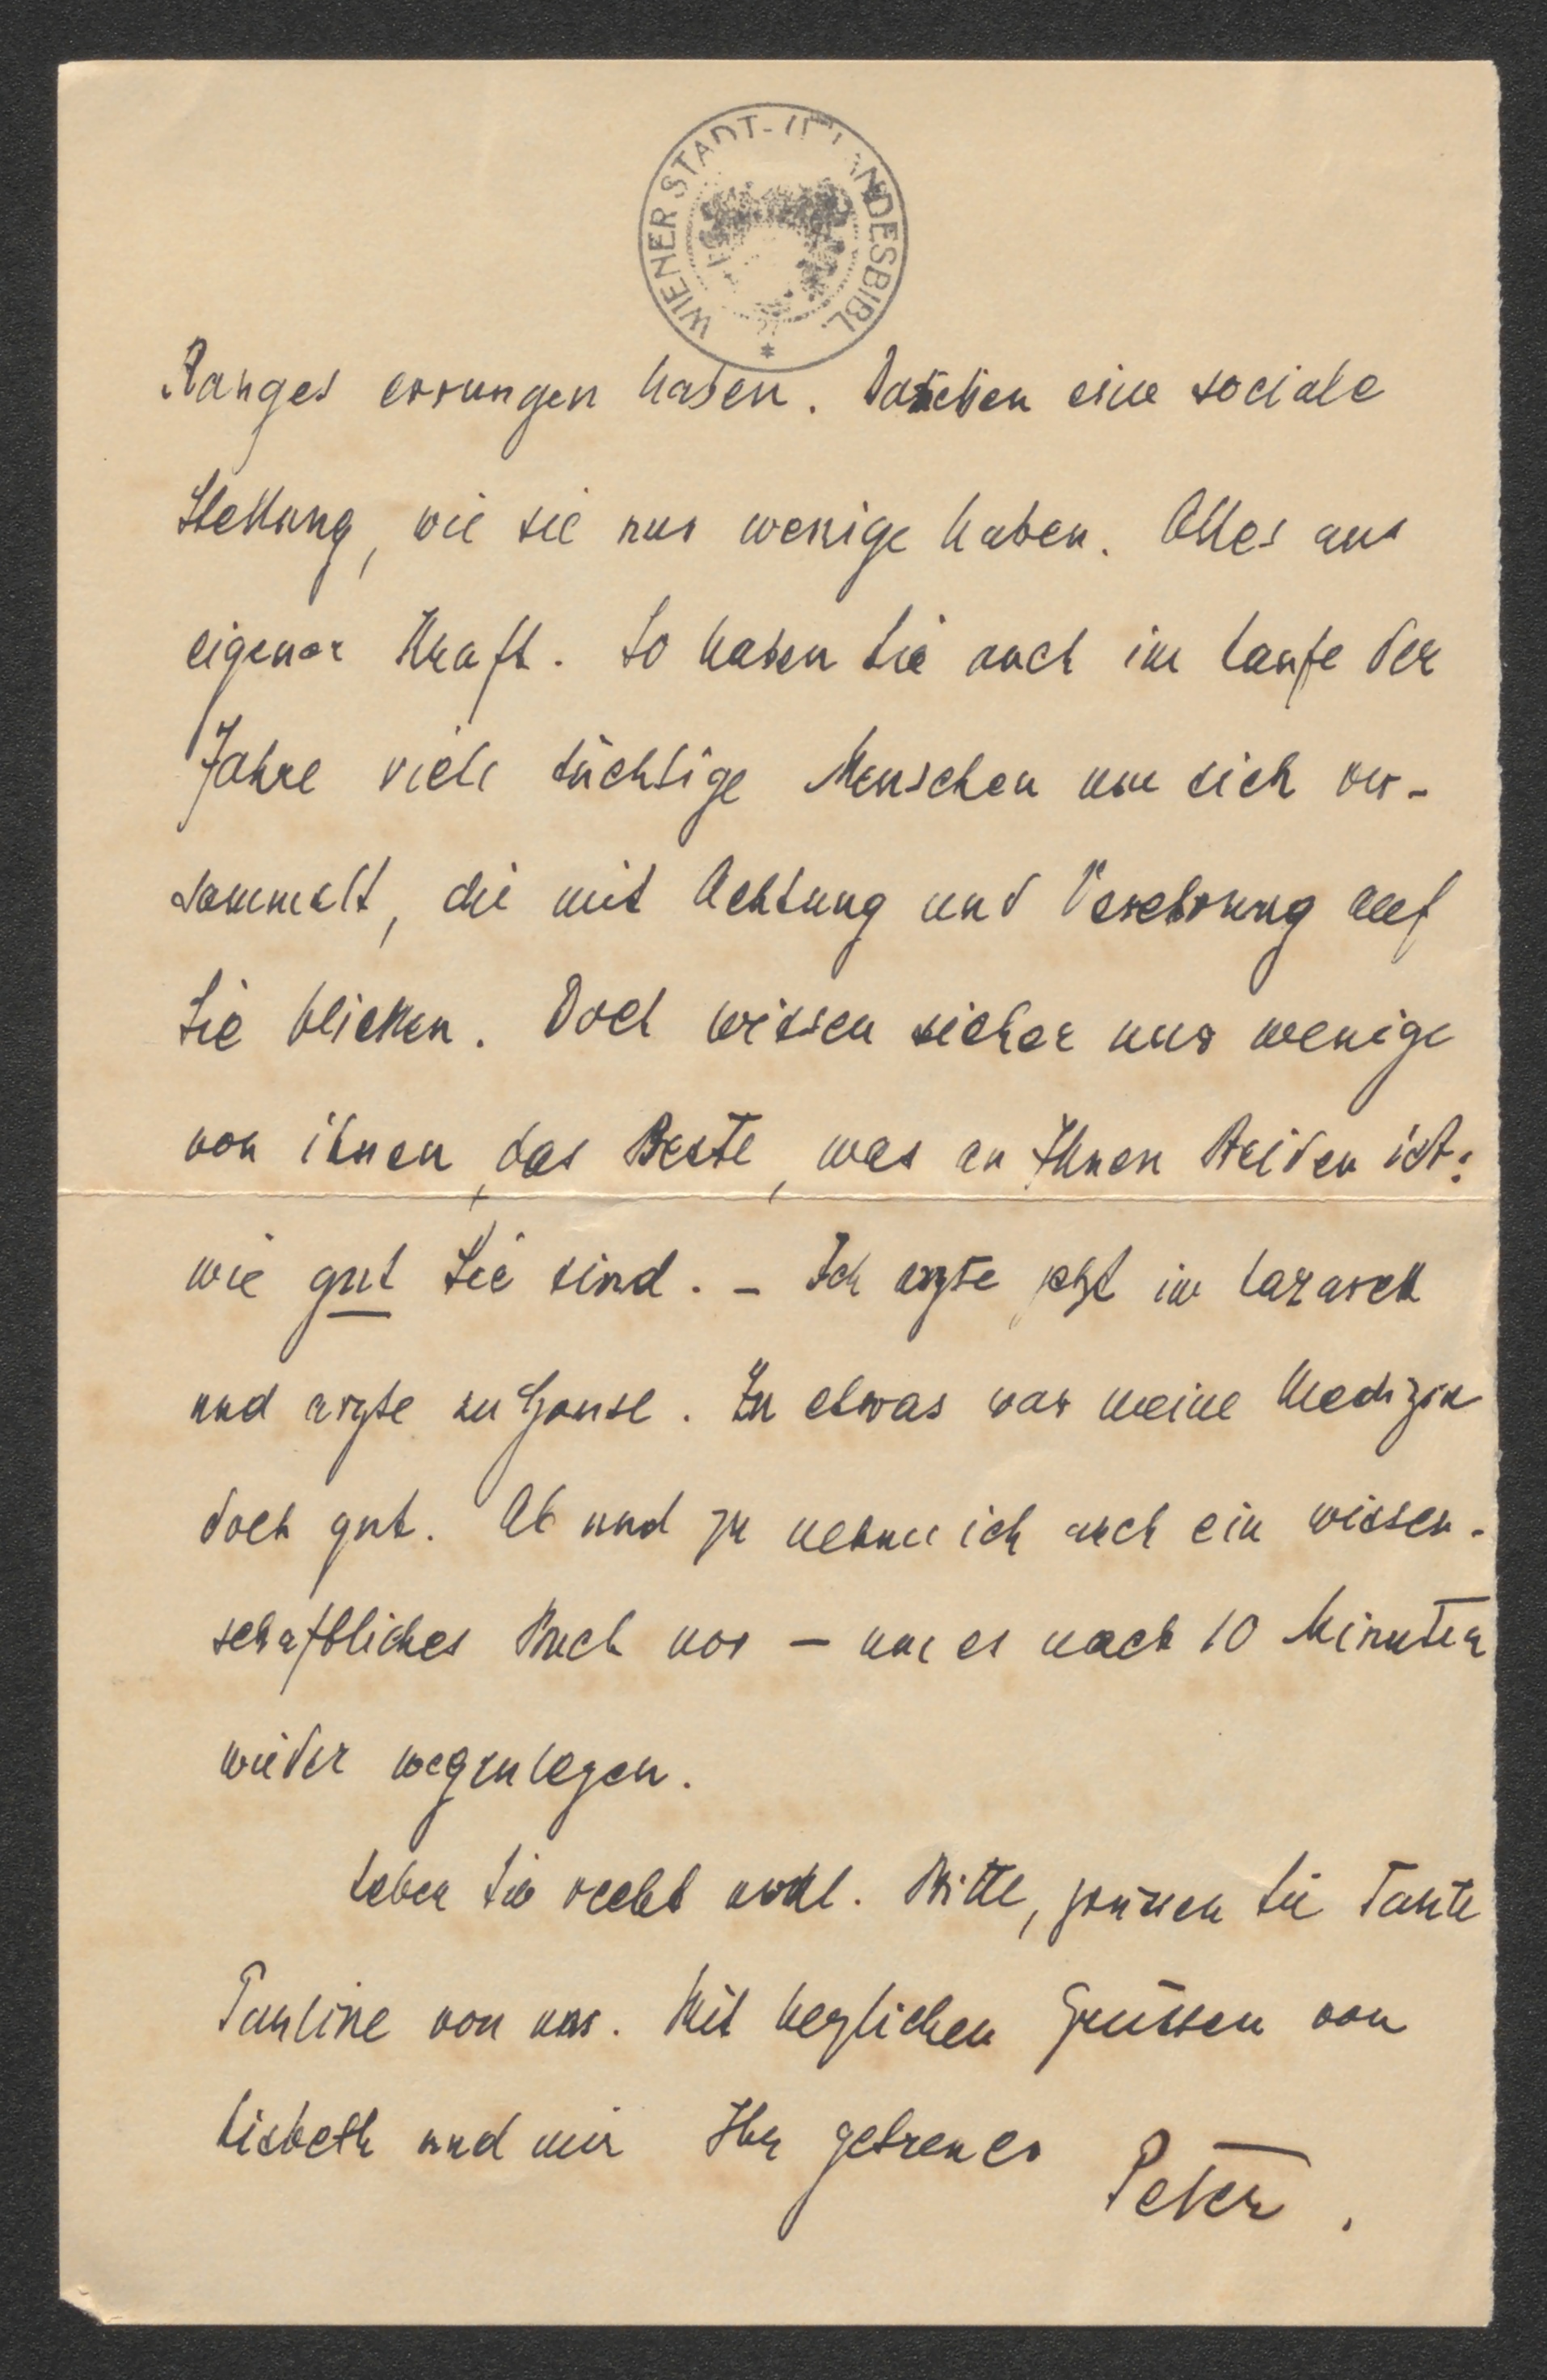 WIENER STADT- U. LANDESBIBL.
Ranges errungen haben. Daneben eine sociale
Stellung, wie sie nur wenige haben. Alles aus
eigener Kraft. So haben Sie auch im Laufe der
Jahre viele tüchtige Menschen um sich ver-
sammelt, die mit Achtung und Verehrung auf
Sie blicken. Doch wissen sicher nur wenige
von ihnen, das Beste, was an Ihnen Beiden ist:
wie gut Sie sind. – Ich arzte jetzt im Lazarett
und arzte zu Hause. Zu etwas war meine Medizin
doch gut. Ab und zu nehme ich auch ein wissen-
schaftliches Buch vor – um es nach 10 Minuten
wieder wegzulegen.
Leben Sie recht wohl. Bitte, grüssen Sie Tante
Pauline von uns. Mit herzlichen Grüssen von
Lisbeth und mir Ihr getreuer
Peter.